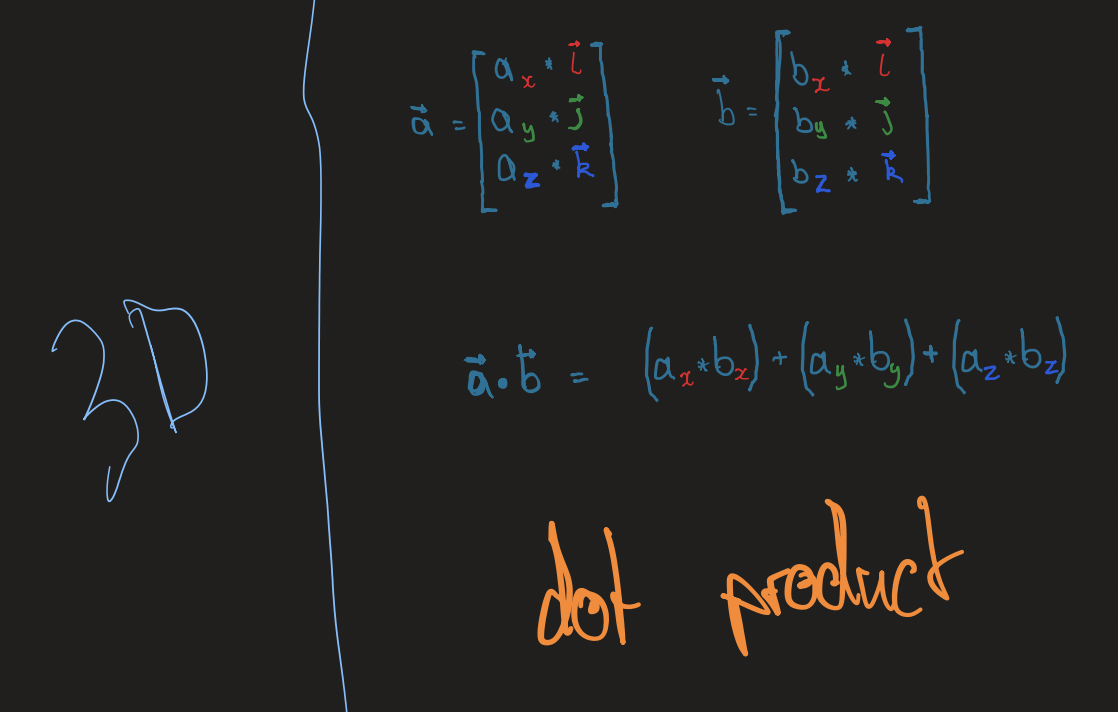 3D
a⃗ = [a_x * i⃗
a_y * j⃗
a_z * k⃗]
b⃗ = [b_x * i⃗
b_y * j⃗
b_z * k⃗]
a⃗ • b⃗ = (a_x * b_x) + (a_y * b_y) + (a_z * b_z)
dot product